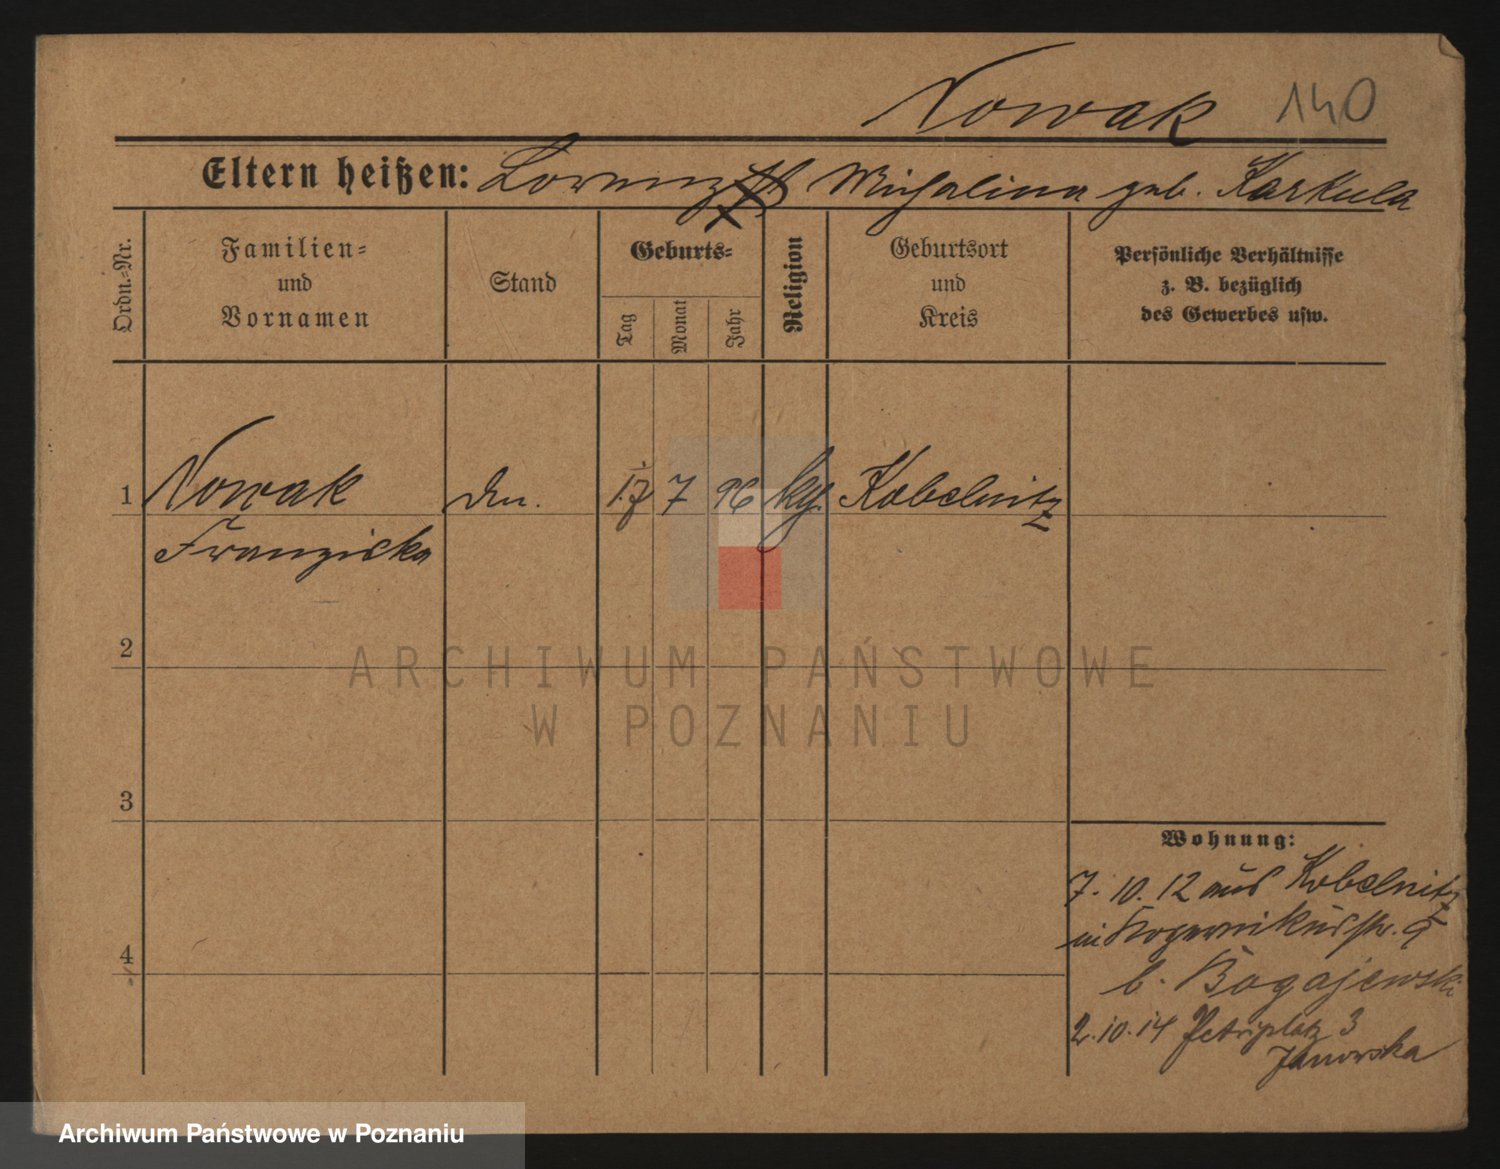 Nowak 140
Eltern heißen: Lorenz Michalina geb. Karkula
Ordn.-Nr.
Familien- und Vornamen
Stand
Geburts-
Tag
Monat
Jahr
Religion
Geburtsort und Kreis
Persönliche Verhältnisse
z. B. bezüglich
des Gewerbes usw.
1 Nowak 17 7 96 Kobelnitz
Franziska
2
ARCHIWUM PAŃSTWOWE
W POZNANIU
3
Wohnung:
7. 10. 12 aus Kobelnitz
in Kopernikusstr. 9
b. Bogajewski
4
2. 10. 14 Petriplatz 3
Janowska
Archiwum Państwowe w Poznaniu